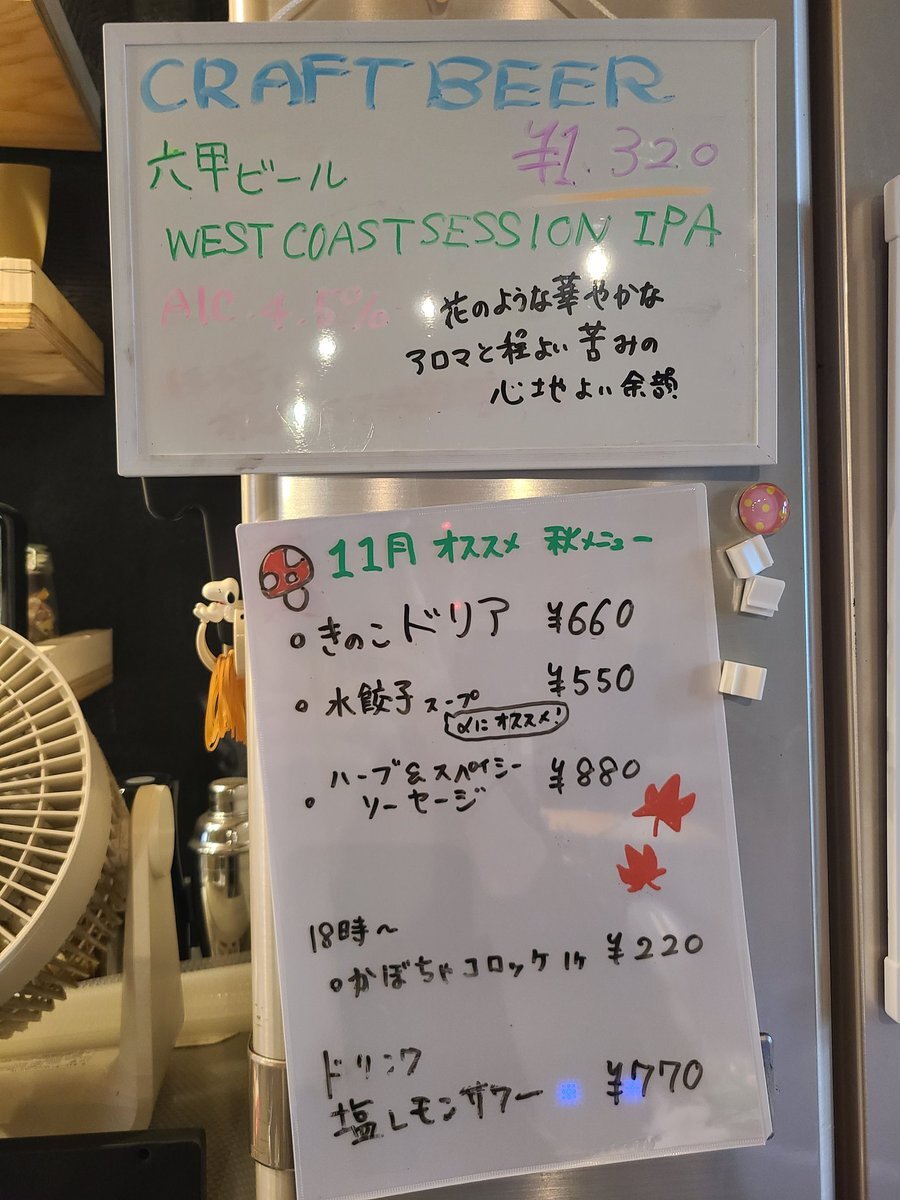 CRAFT BEER
六甲ビール ¥1.320
WEST COAST SESSION IPA
Alc. 4.5%
花のような華やかな
アロマと程よい苦みの
心地よい余韻
11月 オススメ 秋メニュー
きのこドリア ¥660
水餃子スープ ¥550
〆にオススメ!
ハーブ&スパイシー ¥880
ソーセージ
18時〜
かぼちゃコロッケ 1ケ ¥220
ドリンク
塩レモンサワー ¥770